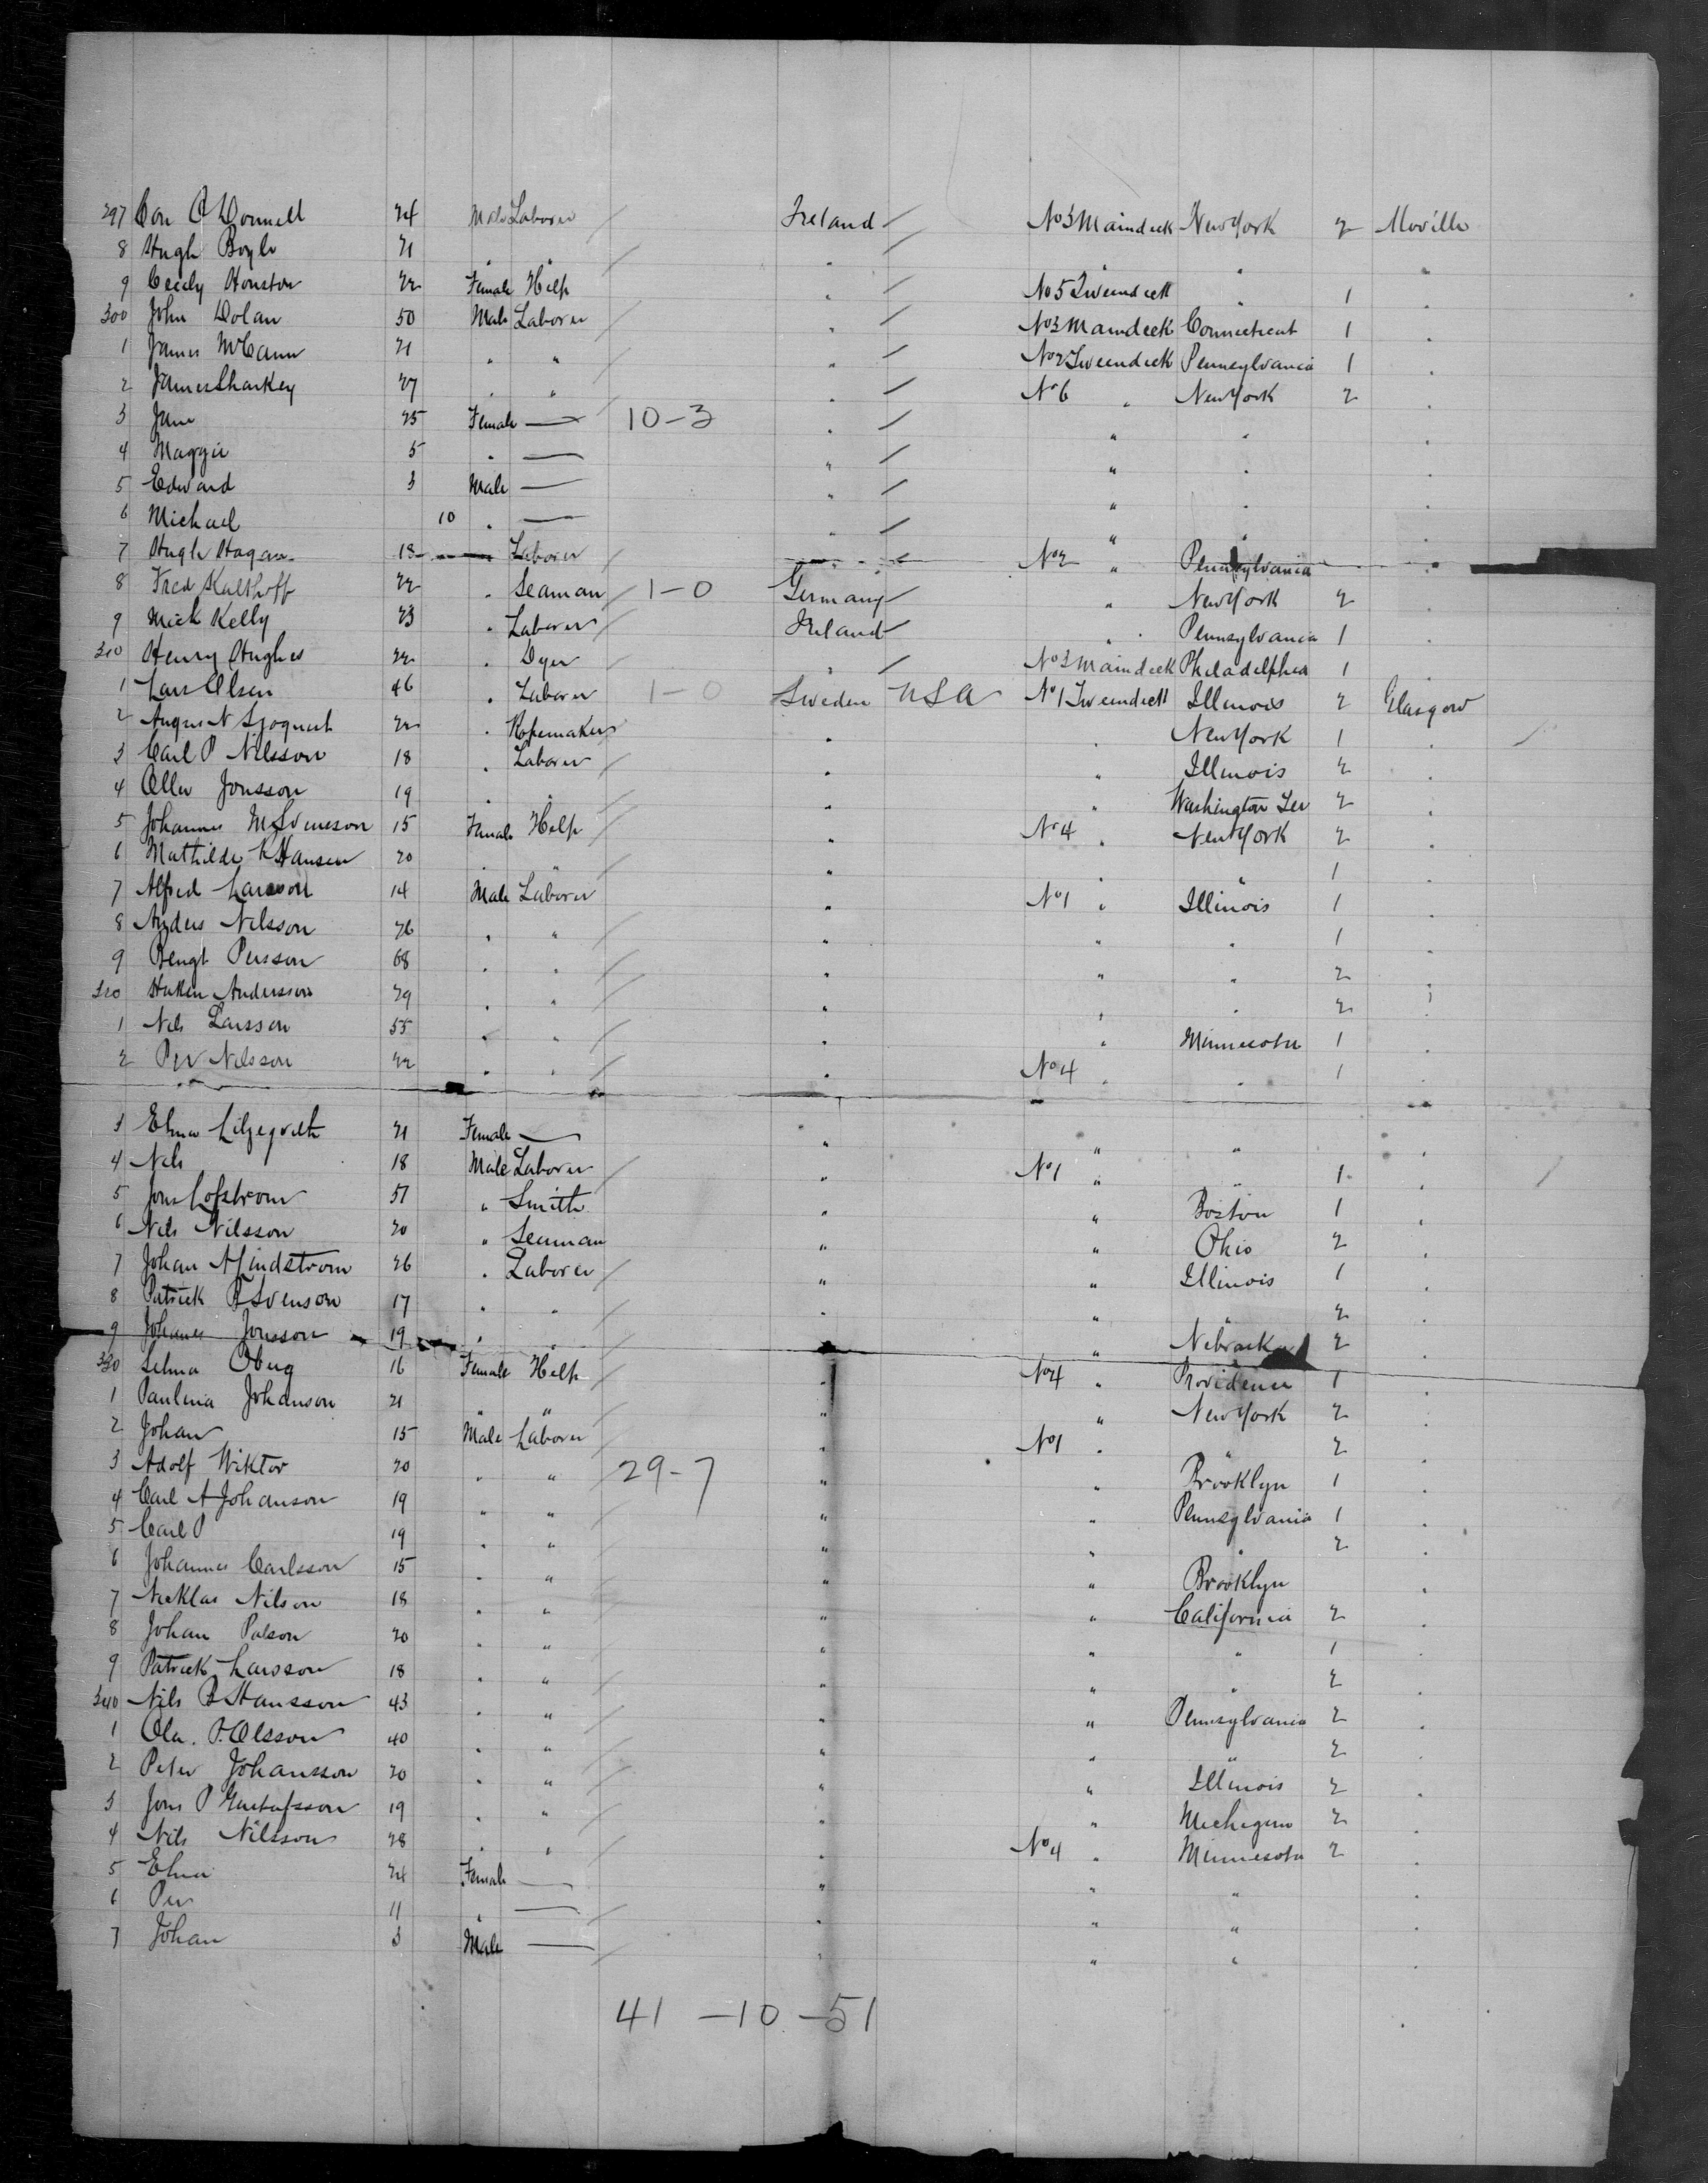 297 Con O'Donnell 24 Male Laborer / Ireland / No 3 Maindeck New York 2 Moville
8 Hugh Boyle 21 " " / " / " " "
9 Cecily Houston 22 Female Help " / No 5 Tweendeck " 1 "
300 John Dolan 50 Male Laborer / " / No 3 Maindeck Connecticut 1 "
1 James McCann 21 " " / " / No 2 Tweendeck Pennsylvania 1 "
2 James Sharkey 27 " " / " / No 6 " New York 2 "
3 Jane 25 Female — 10-3 " / " " "
4 Maggie 5 " — " / " " "
5 Edward 3 Male — " / " " "
6 Michael 10 " — " / " " "
7 Hugh Hagan 18 Laborer / No 2 " Pennsylvania "
8 Fred Kalthoff 22 " Seaman / 1-0 Germany / " New York 2 "
9 Mick Kelly 23 " Laborer / Ireland / " Pennsylvania 1 "
310 Henry Hughes 22 " Dyer / " / No 3 Maindeck Philadelphia 1 "
1 Lars Olsen 46 " Laborer 1-0 Sweden USA No 1 Tweendeck Illinois 2 Glasgow
2 August N 22 " Ropemaker / " " New York 1 "
3 Carl P Nilsson 18 " Laborer / " " Illinois 2 "
4 Olle Jonsson 19 " " / " " Washington Ter 2 "
5 M Svenson 15 Female Help / " No 4 " New York 2 "
6 Mathilde K Hansen 20 " " / " " " 1 "
7 Alfred Larsson 14 Male Laborer / " No 1 " Illinois 1 "
8 Anders Nilsson 26 " " / " " " 1 "
9 Bengt Persson 68 " " / " " " 2 "
320 Haken Andersson 29 " " / " " " 2 "
1 Nils Larsson 55 " " / " " Minnesota 1 "
2 Per Nilsson 22 " " / " No 4 " " 1 "
3 Elna 21 Female — " " " "
4 Nils 18 Male Laborer / " No 1 " " 1 "
5 Jons Lofstrom 51 " Smith " " Boston 1 "
6 Nils Nilsson 20 " Seaman " " Ohio 2 "
7 Johan A Lindstrom 26 " Laborer / " " Illinois 1 "
8 Patrick B Svenson 17 " " / " " " 2 "
9 Johanes Jonsson 19 " " / " " Nebraska 2
330 Selma Oberg 16 Female Help / " No 4 " Providence 1 "
1 Paulina Johanson 21 " " / " " New York 2 "
2 Johan 15 Male Laborer / " No 1 " " 2 "
3 Adolf Wiktor 20 " " / 29-7 " " Brooklyn 1 "
4 Carl A Johanson 19 " " / " " Pennsylvania 1 "
5 Carl P 19 " " / " " " 2 "
6 Johannes Carlsson 15 " " / " " Brooklyn "
7 Nicklas Nilson 18 " " / " " California 2 "
8 Johan Palson 20 " " / " " " 1 "
9 Patrick Larsson 18 " " / " " " 2 "
340 Nils B Hansson 43 " " / " " Pennsylvania 2 "
1 Ola P. Olsson 40 " " / " " " 2 "
2 Peter Johansson 20 " " / " " Illinois 2 "
3 Jons P Gustafsson 19 " " / " " Michigan 2 "
4 Nils Nilsson 28 " " / " No 4 " Minnesota 2 "
5 Elna 24 Female — " " " "
6 Per 11 " — / " " " "
7 Johan 3 Male — / " " " "
41 -10 -51